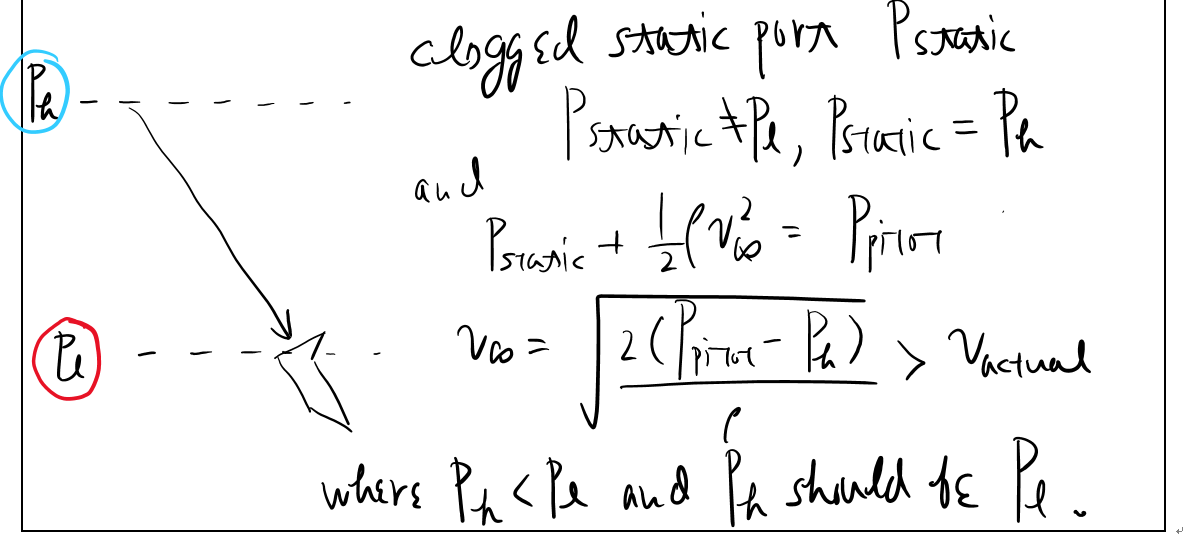 clogged static port P_static
P_h
P_static ≠ P_l, P_static = P_h
and
P_static + 1/2 ρ v_∞^2 = P_pitot
P_l
v_∞ = √(2(P_pitot - P_h)/ρ) > v_actual
where P_h < P_l and P_h should be P_l.